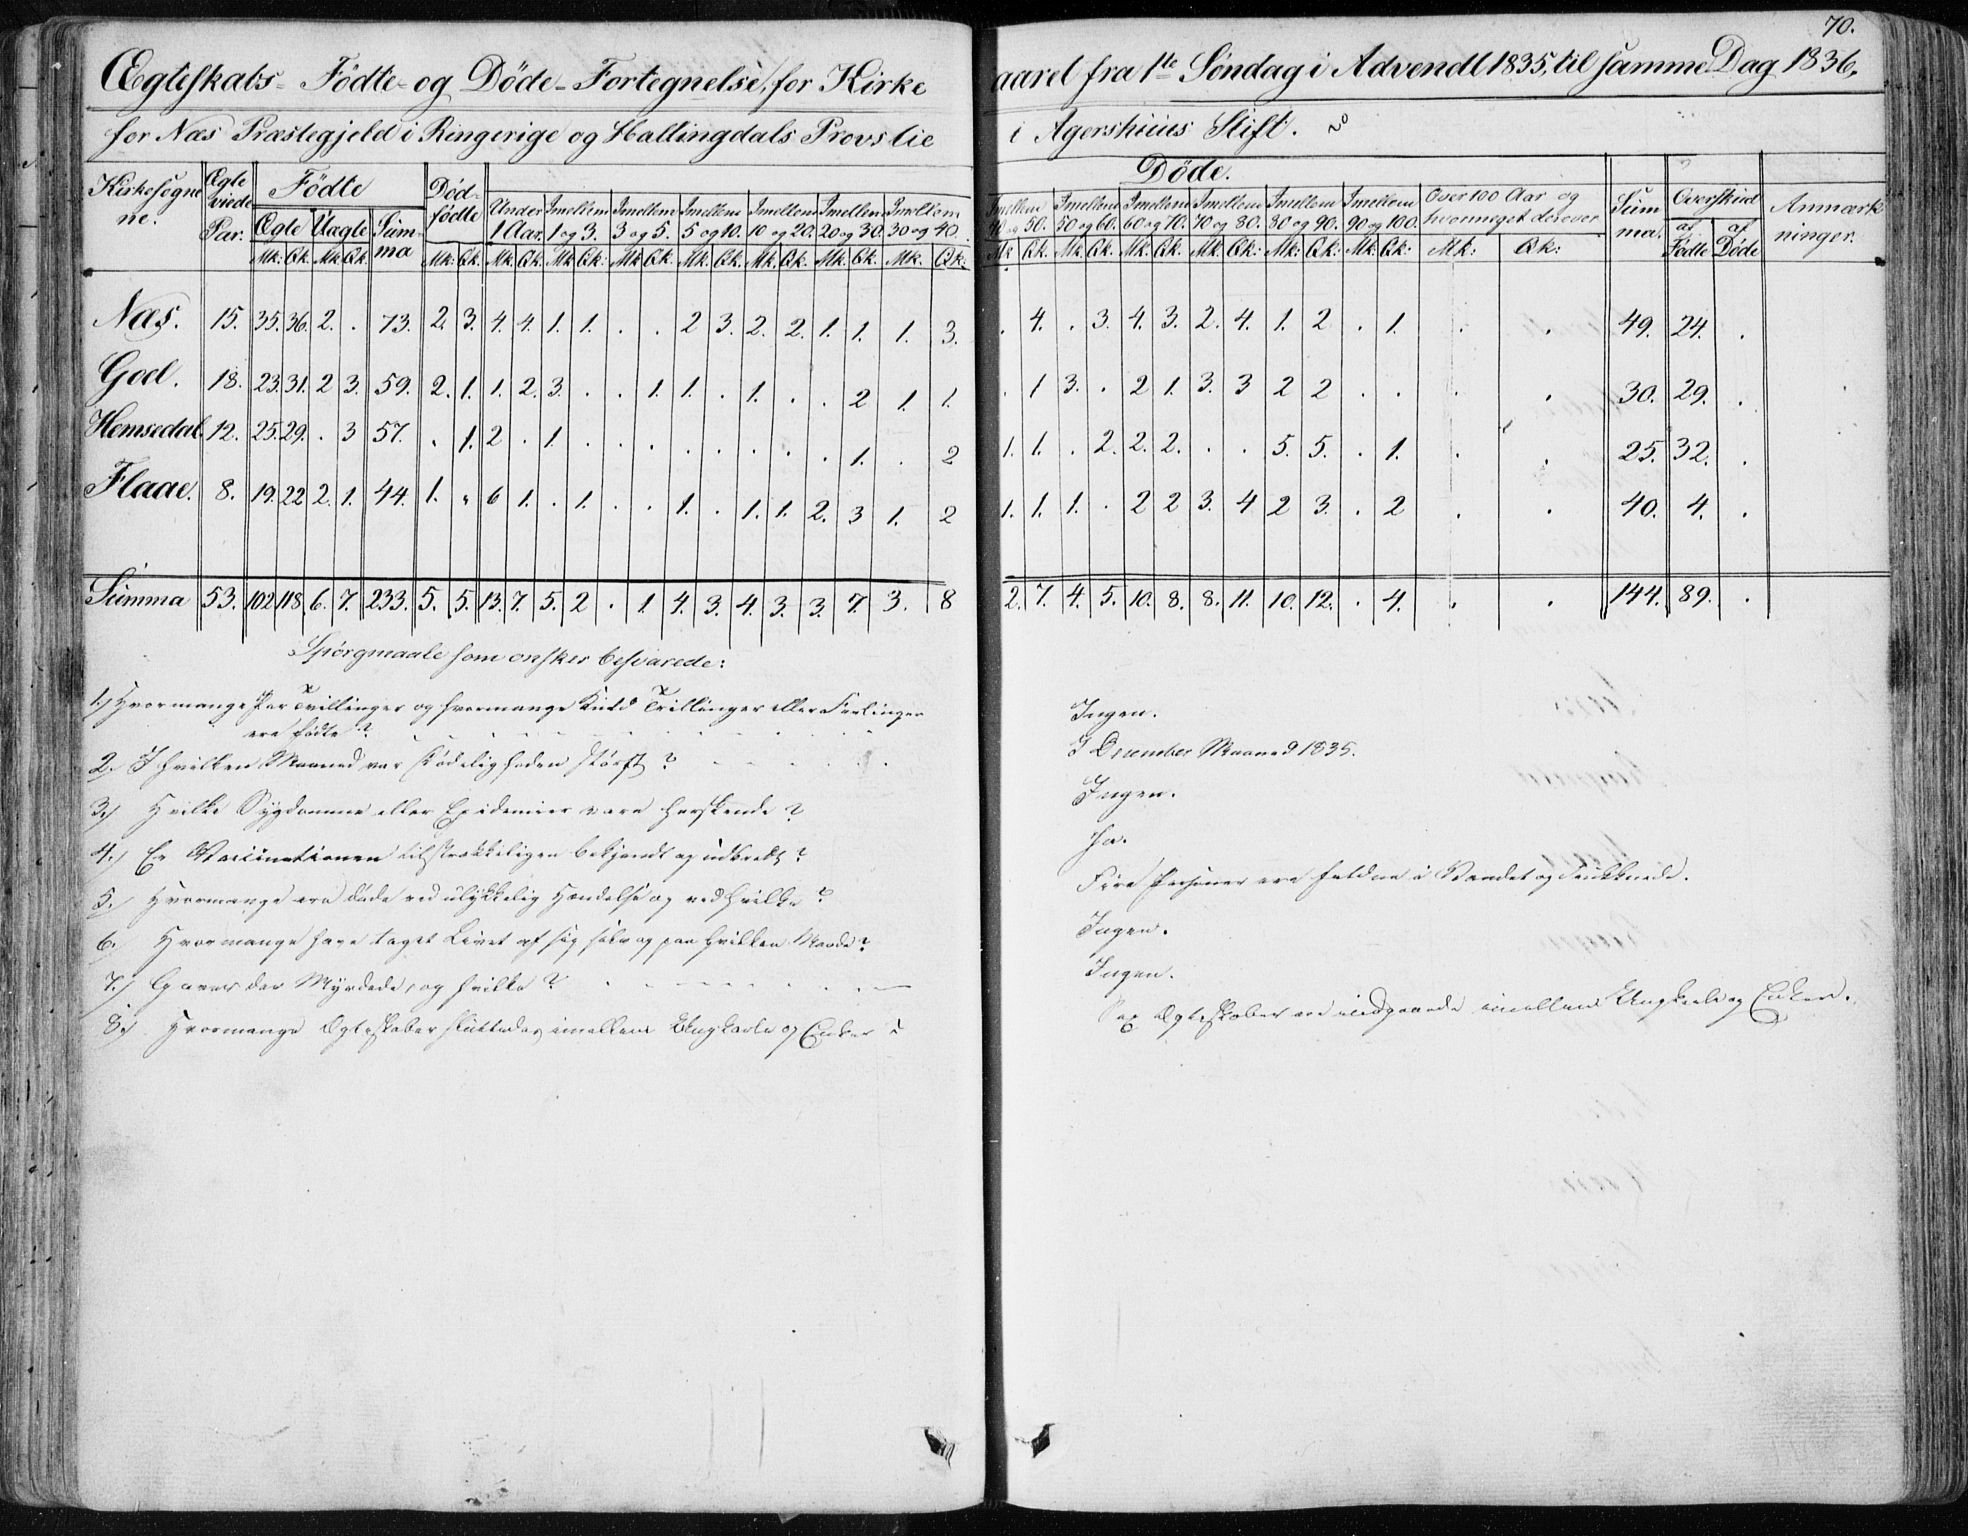 70.
Ægteskabs- Födte- og Döde- Fortegnelse, for Kirke aaret fra 1te Söndag i Advendt 1835, til samme Dag 1836.
for Næs Præstegjeld i Ringerige og Hallingdals Provstie i Agershuus Stift.
Kirkesogne ne. Ægte viede Par. Födte Död-födte Döde. Sum ma. Overskud Anmærk ninger.
Ægte Uægte Sum ma Under 1 Aar. Imellem 1 og 3. Imellem 3 og 5. Imellem 5 og 10. Imellem 10 og 20. Imellem 20 og 30. Imellem 30 og 40. Imellem 40 og 50. Imellem 50 og 60. Imellem 60 og 70. Imellem 70 og 80. Imellem 80 og 90. Imellem 90 og 100. Over 100 Aar og hvormeget derover af Födte af Döde
Mk: Qk. Mk Qk. Mk: Qk. Mk: Qk. Mk Qk: Mk Qk. Mk: Qk. Mk: Qk. Mk. Qk. Mk. Qk. Mk Qk. Mk. Qk. Mk. Qk: Mk: Qk: Mk: Qk: Mk: Qk: Mk: Qk:
Næs. 15. 35. 36. 2. . 73. 2. 3. 4. 4. 1. 1. . . 2 3. 2. 2. 1. 1. 1. 3. . 4. . 3. 4. 3. 2. 4. 1. 2 . 1. . . 49. 24. .
Goel. 18. 23. 31. 2 3. 59. 2. 1. 1. 2. 3. . . 1. 1. . 1. . . 2 1. 1. . 1 3. . 2 1. 3. 3 2 2 . . . . 30. 29. .
Hemsedal. 12. 25. 29. . 3 57. . 1. 2 . 1. . . . . . . . . 1. . 2 1. 1. . 2. 2. 2. . . 5. 5. . 1. . . 25. 32. .
Flaae. 8. 19. 22 2. 1. 44. 1. " 6 1. . 1. . . 1. . 1. 1. 2. 3 1. 2 1. 1. 1. . 2 2 3. 4 2 3. . 2 . . 40. 4. .
Summa 53. 102 118. 6. 7. 233. 5. 5. 13. 7. 5. 2 . 1. 4. 3. 4. 3. 3. 7. 3. 8 2. 7. 4. 5. 10. 8. 8. 11. 10. 12. . 4. . . 144. 89. .
Spörgmaale som önskes besvarede:
1.) Hvormange Par Tvillinger og hvormange Kuld Trillinger eller Feerlinger
ere födte? Ingen.
2.) I hvilken Maaned var Dödeligheden störst? I December Maaned 1835.
3.) Hvilke Sygdomme eller Epidemier vare herskende? Ingen.
4.) Er Vaccinationen tilstrækkeligen bekjendt og udbredt? Ja.
5.) Hvormange ere döde ved ulykkelig Hændelse og ved hvilke? Fire Personer ere faldne i Vandet og druknede.
6.) Hvormange have taget Livet af sig selv og paa hvilken Maade? Ingen.
7.) Gaves der Myrdede, og hvilke? Ingen.
8.) Hvormange Ægteskaber sluttedes imellem Ungkarle og Enker? Sex Ægteskaber ere indgaaede imellem Ungkarle og Enker.